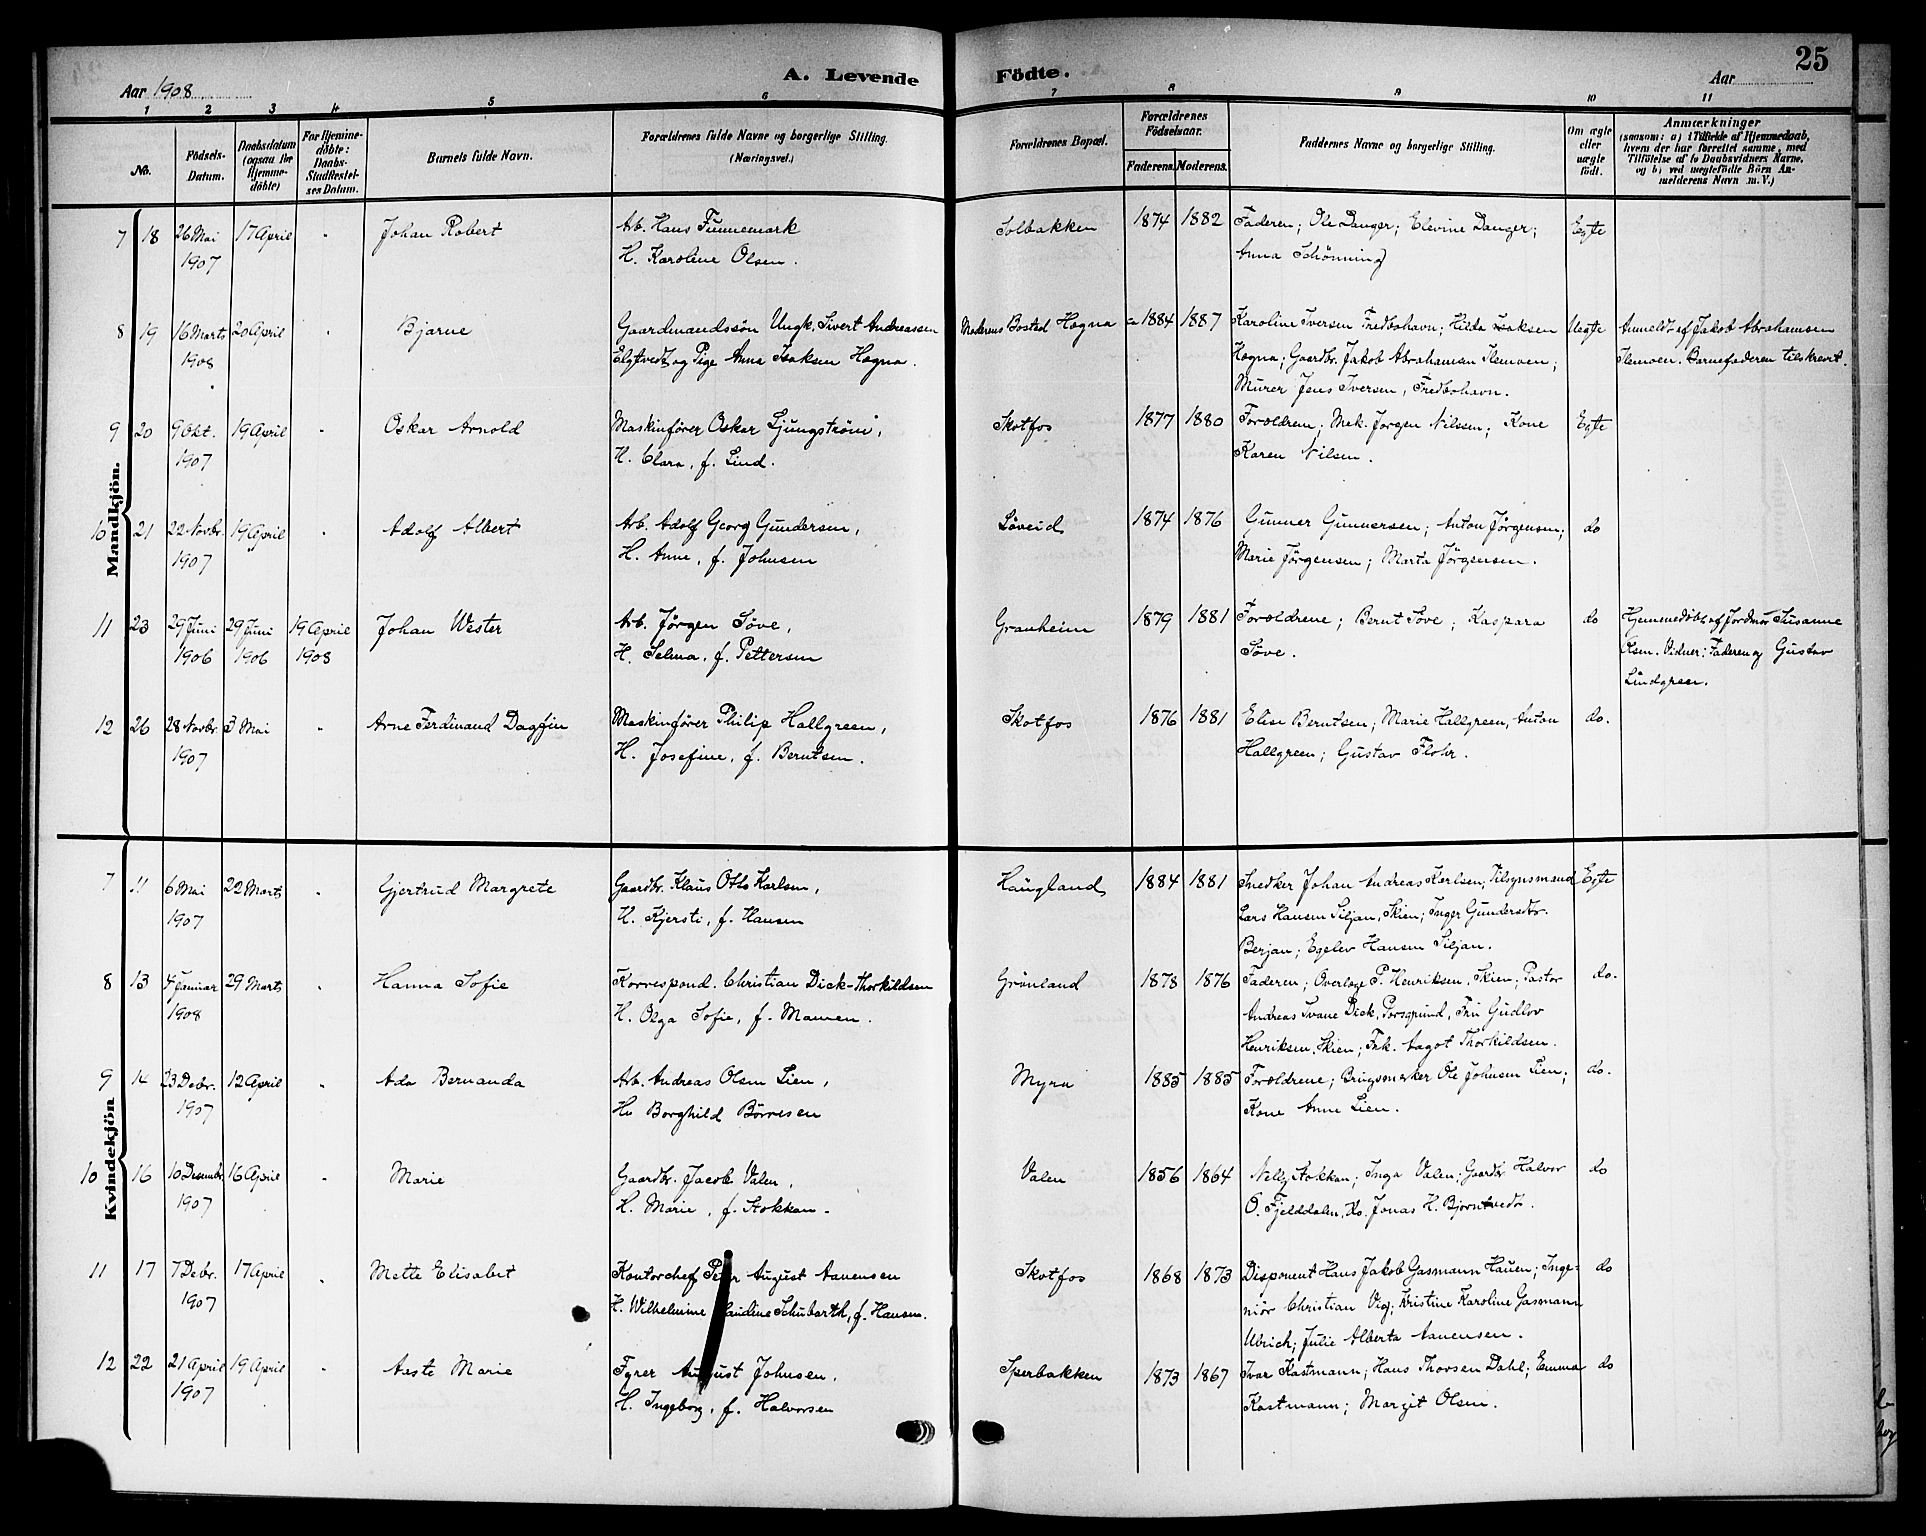 25
A. Levende Födte.
Aar 1908
Aar
1 2 3 4 5 6 7 8 9 10 11
No.
Födsels-Datum.
Daabsdatum (ogsaa for Hjemme-döbte)
For Hjemme-döbte: Daabs-Stadfæstel-ses Datum.
Barnets fulde Navn.
Forældrenes fulde Navne og borgerlige Stilling. (Næringsvei.)
Forældrenes Bopæl.
Forældrenes Födselsaar.
Faderens. Moderens.
Faddernes Navne og borgerlige Stilling.
Om ægte eller uægte födt.
Anmærkninger
(saasom: a) i Tilfælde af Hjemmedaab, hvem der har forrettet samme, med Tilföielse af to Daabsvidners Navne, og b) ved uægtefödte Börn Anmelderens Navn m. V.)
Mandkjön.
7 18 26 Mai 17 April " Johan Robert Arb. Hans Funnemark Solbakken 1874 1882 Faderen; Ole Danger; Elevine Danger; Egte
1907 H. Karoline Olsen. Anna Schönning
8 19 16 Marts 20 April " Bjarne Gaardmandssön Ungk. Sivert Andreassen Moderens Bosted Hogna ca 1884 1887 Karoline Iversen Fredbohavn; Hilda Isaksen Uegte Anmeldt af Jakob Abrahamsen
1908 Elgtvedt og Pige Anna Isaksen Hogna. Hogna; Gaardbr. Jakob Abrahamsen Slemoen; Slemoen. Barnefaderen tilskrevet.
Murer Jens Iversen, Fredbohavn.
9 20 9 Okt. 19 April " Oskar Arnold Maskinförer Oskar Ljungström, Skotfos 1877 1880 Forældrene; Mek. Jorgen Nilssen; Kone Egte
1907 H. Clara, f. Lind. Karen Nilsen.
10 21 22 Novbr. 19 April " Adolf Albert Arb. Adolf Georg Gundersen, Löveid 1874 1876 Gunner Gunnersen; Anton Jörgensen; do
1907 H. Anne, f. Johnsen Marie Jörgensen; Marta Jörgensen.
11 23 29 Juni 29 Juni 19 April Johan Wester Arb. Jörgen Söve, Granheim 1879 1881 Forældrene; Bernt Söve; Kaspara do Hjemmedöbt af Jordmor Susanne
1906 1906 1908 H. Selma, f. Pettersen Söve. Olsen. Vidner: Faderen og Gustav
Lindgreen.
12 26 28 Novbr. 3 Mai " Arne Ferdinand Dagfin Maskinförer Philip Hallgreen, Skotfos 1876 1881 Elise Berntsen; Marie Hallgreen, Anton do.
1907 H. Josefine, f. Berntsen. Hallgreen; Gustav Flohr.
Kvindekjön
7 11 6 Mai 22 Marts " Gjertrud Margrete Gaardbr. Klaus Otto Karlsen, Haugland 1884 1881 Snedker Johan Andreas Karlsen, Tilsynsmand Egte
1907 H. Kjersti, f. Hansen Lars Hansen Siljan, Skien; Inger Gundersdtr.
Berjan; Egelev Hansen Siljan.
8 13 4 Januar 29 Marts " Hanna Sofie Korrespond. Christian Dick-Thorkildsen Grönland 1878 1876 Faderen; Overlæge P. Henriksen, Skien; Pastor do.
1908 H. Olga Sofie, f. Mamen. Andreas Tvane Dick, Porsgrund, Fru Gudlov
Henriksen, Skien; Frk. Aagot Thorkildsen.
9 14 23 Debr. 12 April " Ada Bernanda Arb. Andreas Olsen Lien, Myra 1885 1885 Forældrene; Brugsmerker Ole Johnsen Lien; do.
1907 H. Borghild Börresen Kone Anne Lien.
10 16 10 Desembr. 16 April " Marie Gaardbr. Jacob Valen, Valen 1856 1864 Nelly Stokkan; Inga Valen; Gaardbr. Halvor do
1907 H. Marie, f. Stokkan. O. Fjelddalen, do. Jonas H. Bjorntvedt.
11 17 7 Debr. 17 April " Mette Elisabet Kontorchef August Aanensen Skotfos 1868 1873 Disponent Hans Jakob Gasmann Hauen; Inge- do
1907 H. Wilhelmine Schubarth, f. Hansen. niör Christian Vig; Kristine Karoline Gasmann
Ulrich; Julie Alberta Aanensen.
12 22 21 April 19 April " Aaste Marie Fyrer August Johnsen, Sperbakken 1873 1867 Ivar Kastmann; Hans Thorsen Dahl; Emma do
1907 H. Ingeborg, f. Halvorsen Kastmann; Margit Olsen.